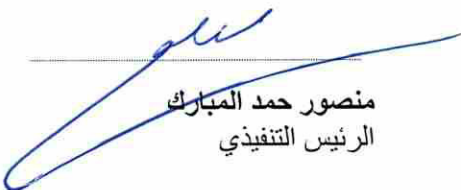 منصور حمد المبارك
الرئيس التنفيذي